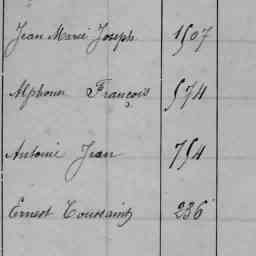 Jean Marie Joseph 1507
Alphonse François 574
Antoine Jean 754
Ernest Toussaint 236